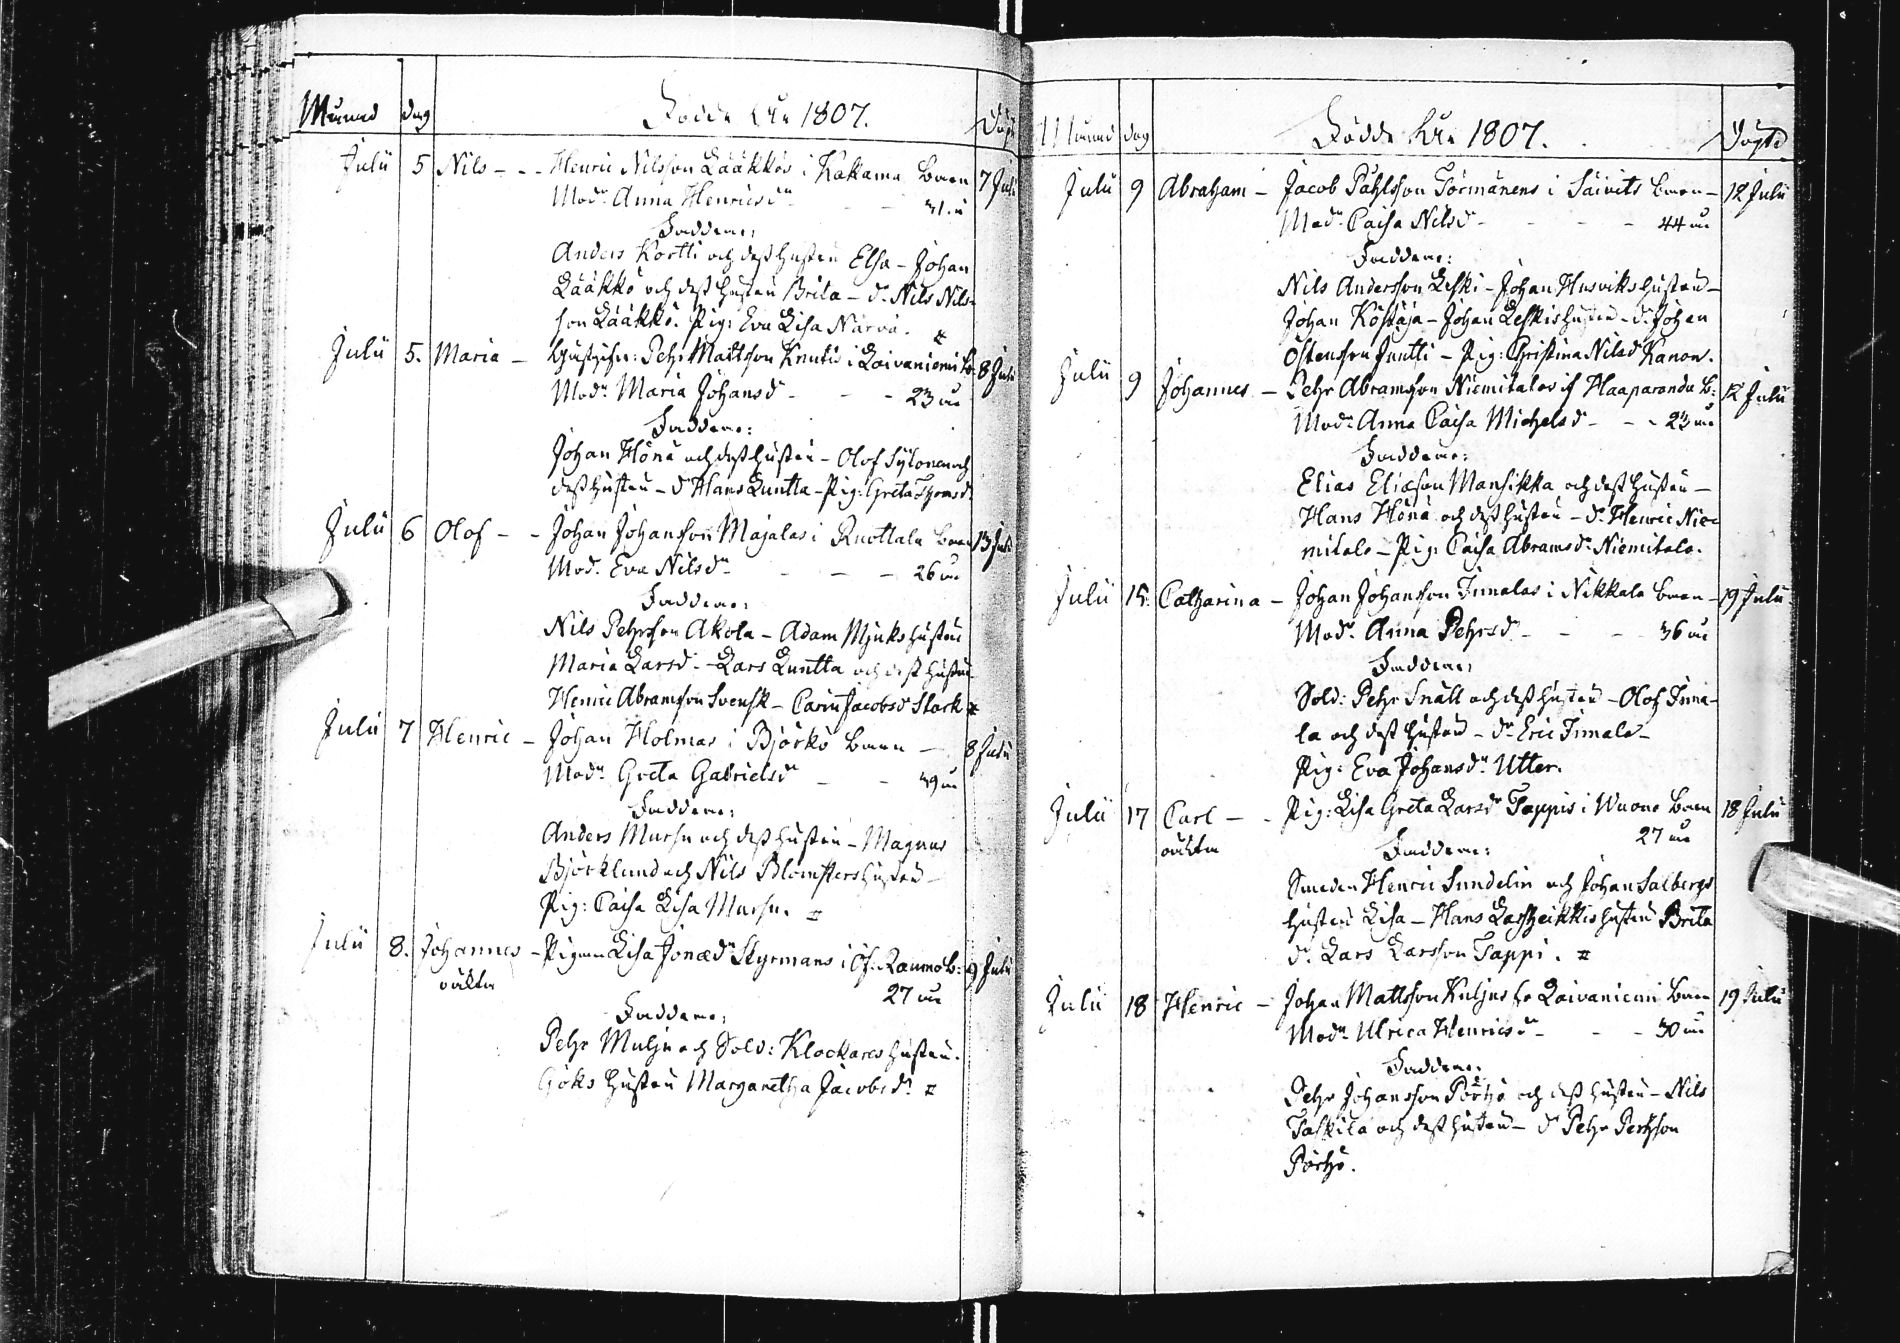 Månad dag Födde År 1807. Döpt
Julii 5 Nils - - - Henric Nilsson Lääkkös i Kakama barn 7 Julii
Modr. Anna Henricsdr 31. år
Faddrar:
Anders Kortti och dess hustru Elsa - Johan
Lääkkö och dess hustru Brita - dr. Nils Nils-
son Lääkkö. Pig: Eva Lisa Narva.
Julii 5. Maria - Pehr Mattsson Knuti i Laivaniemi b: 8 Julii
Modr. Maria Johansdr - - - 23 år
Faddrar:
Johan Hönä och dess hustru - Olof Sylönen och
dess hustru - dr Hans Luntta - Pig: Greta
Julii 6 Olof - - Johan Johansson Majalas i Ruottala barn 13 Julii
Modr. Eva Nilsdr - - - 26 år
Faddrar:
Nils Pehrsson Akola - Adam Mjuks hustru
Maria Larsdr. - Lars Luntta och dess hustru
Henric Abramsson Svensk - Carin Jacobsdr Stark
Julii 7 Henric - Johan Holmas i Björkö barn - 8 Julii
Modr. Greta Gabrielsdr - - 39 år
Faddrar:
Anders Mursu och dess hustru - Magnus
Björklund och Nils Blomsters hustru -
Pig: Caisa Lisa Mursu.
Julii 8. Johannes - Pigan Lisa Jonædr Styrmans i Öf: Raumo b: 9 Julii
oächta 27 år
Faddrar:
Pehr Mulju och Sold: Klockares hustru.
Göks hustru Margaretha Jacobsdr.
Månad dag Födde År 1807. Döpte
Julii 9 Abraham - Jacob Påhlsson Törmänens i Säivits barn - 12 Julii
Modr. Caisa Nilsdr - - - 44 år
Faddrar:
Nils Andersson Leski - Johan Husviks hustru -
Johan Köstäjä - Johan Leskis hustru - dr. Johan
Östensson Juntti - Pig: Christina Nilsdr Kanon.
Julii 9 Johannes - Pehr Abramsson Niemitalos if Haaparanda b: 12 Julii
Modr. Anna Caisa Michelsdr - - - 23 år
Faddrar:
Elias Eliæson Mansikka och dess hustru -
Hans Hönä och dess hustru - dr. Henric Nie-
mitalo - Pig: Caisa Abramsdr. Niemitalo.
Julii 15. Catharina - Johan Johansson Innalas i Nikkala barn - 19 Julii
Modr. Anna Pehrsdr - - - 36 år
Faddrar:
Sold: Pehr Snäll och dess hustru - Olof Inna-
la och dess hustru - dr. Eric Innala -
Pig: Eva Johansdr. Utter.
Julii 17 Carl - - Pig: Lisa Greta Larsdr Tappis i Wuono barn 18 Julii
oächta 27 år
Faddrar:
Smeden Henric Sundelin och Johan Salbergs
hustru Lisa - Hans hustru Brita
dr. Lars Larsson Tappi.
Julii 18 Henric - Johan Mattsson Kuljus fr Laivaniemi barn 19 Julii
Modr. Ulrica Henricsdr - - - 30 år
Faddrar:
Pehr Johansson Pörhö och dess hustru - Nils
Taskila och dess hustru - dr Pehr Pehrsson
Pörhö.